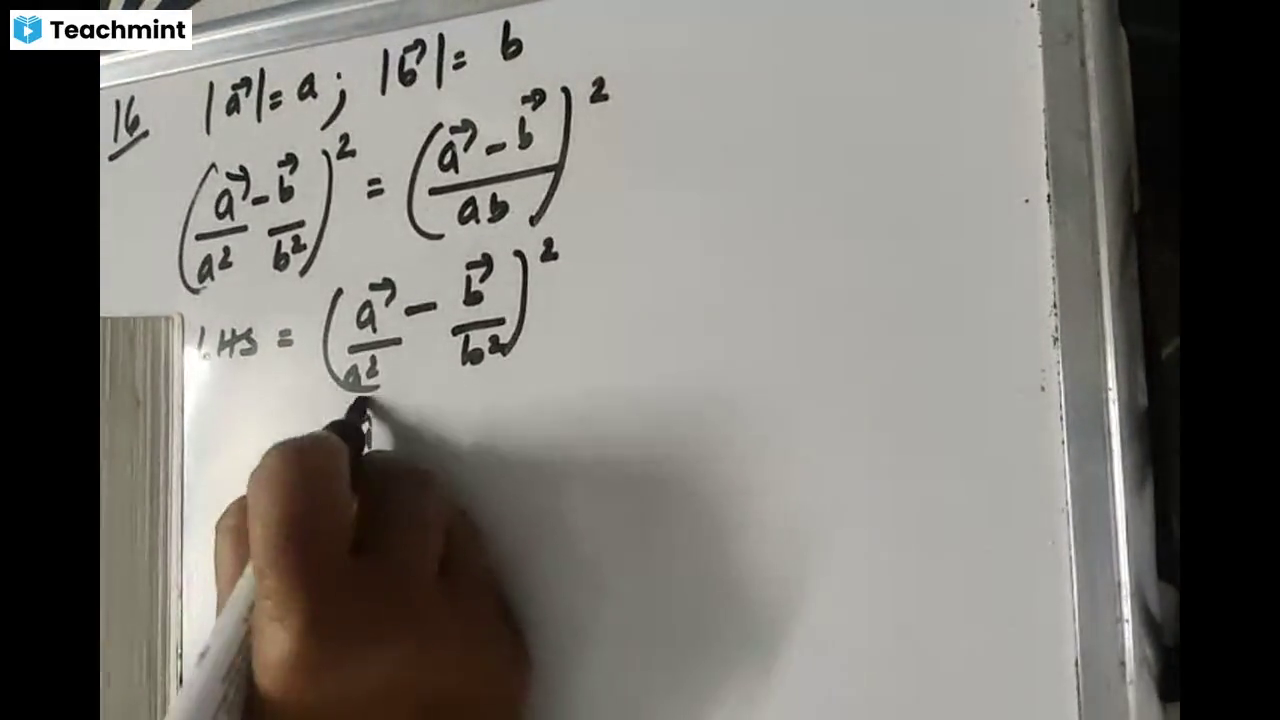 Teachmint
16 |a⃗| = a ; |b⃗| = b
(a⃗/a² - b⃗/b²)² = ((a⃗ - b⃗)/ab)²
LHS = (a⃗/a² - b⃗/b²)²